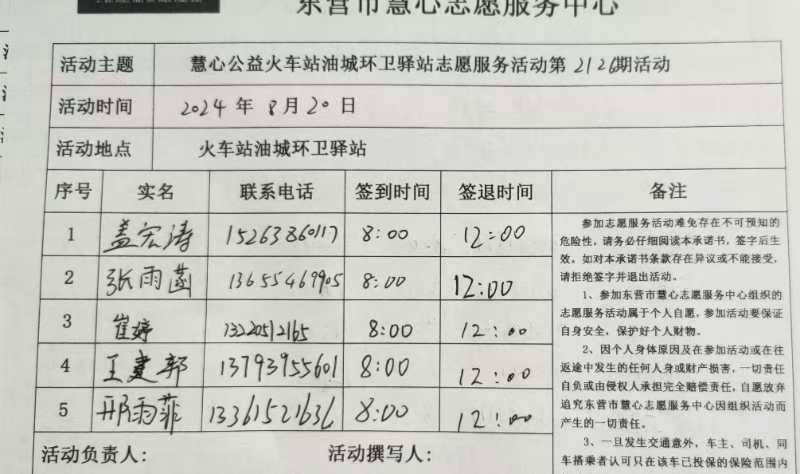 东营市慧心志愿服务中心
活动主题 慧心公益火车站油城环卫驿站志愿服务活动第2126期活动
活动时间 2024年8月20日
活动地点 火车站油城环卫驿站
序号 实名 联系电话 签到时间 签退时间 备注
1 盖宏涛 15263860117 8:00 12:00
2 张雨菡 13655469905 8:00 12:00
3 崔婷 13220512165 8:00 12:00
4 王建邦 13793955601 8:00 12:00
5 邢雨菲 13361521636 8:00 12:00
参加志愿服务活动难免存在不可预知的
危险性,请务必仔细阅读本承诺书,签字后生
效。如对本承诺书条款存在异议或不能接受,
请拒绝签字并退出活动。
1、参加东营市慧心志愿服务中心组织的
志愿服务活动属于个人自愿,参加活动要保证
自身安全,保护好个人财物。
2、因个人身体原因及在参加活动或在往
返途中发生的任何人身或财产损害,一切责任
自负或由侵权人承担完全赔偿责任,自愿放弃
追究东营市慧心志愿服务中心因组织活动而
产生的一切责任。
3、一旦发生交通意外,车主、司机、同
车搭乘者认可只在该车已投保的保险范围内
活动负责人: 活动撰写人: